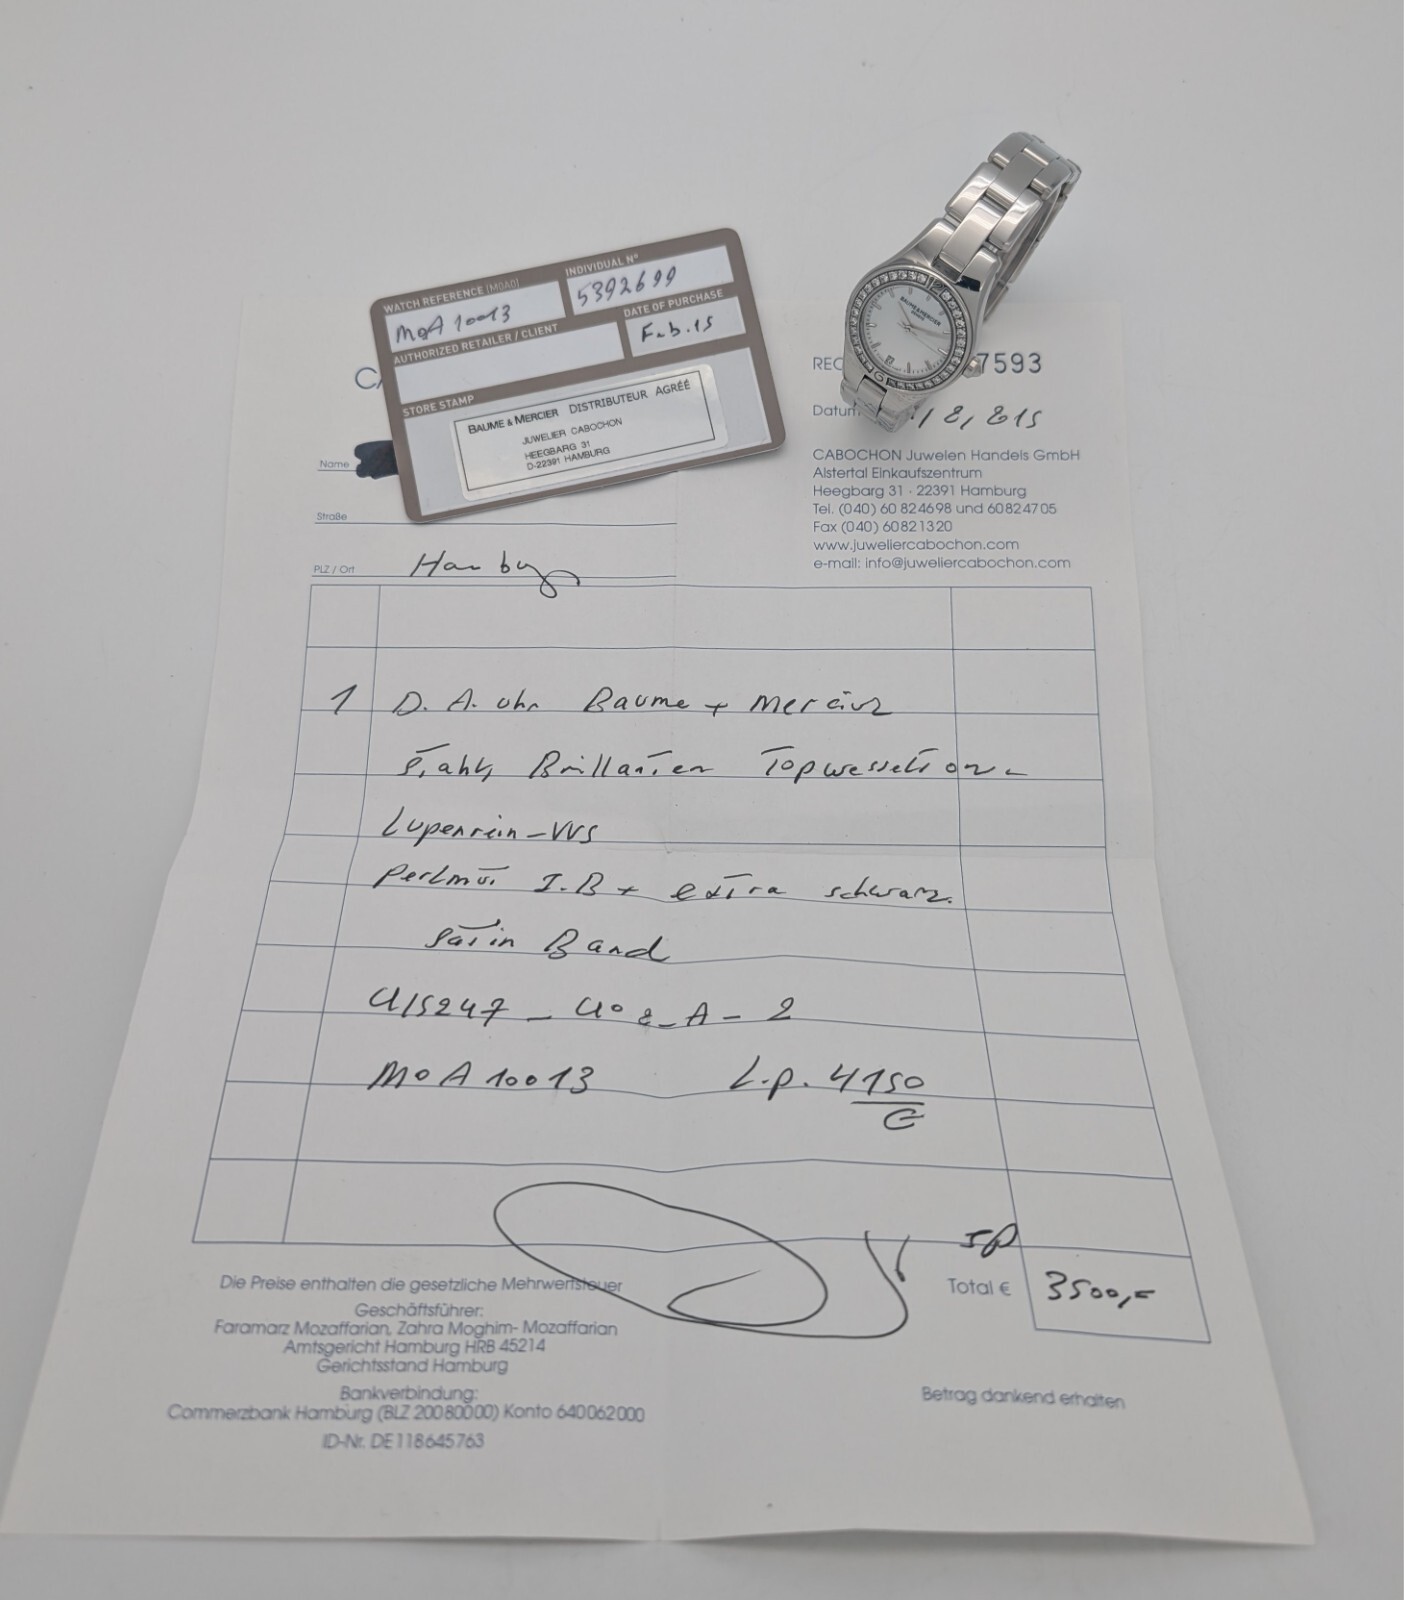 WATCH REFERENCE (MOA0)
INDIVIDUAL N°
MoA 10013
5392699
AUTHORIZED RETAILER / CLIENT
DATE OF PURCHASE
Feb. 15
STORE STAMP
BAUME & MERCIER DISTRIBUTEUR AGRÉÉ
JUWELIER CABOCHON
HEEGBARG 31
D-22391 HAMBURG
BAUME & MERCIER
7593
Datum
CABOCHON Juwelen Handels GmbH
Alstertal Einkaufszentrum
Heegbarg 31 · 22391 Hamburg
Tel. (040) 60 824698 und 60824705
Fax (040) 60821320
www.juweliercabochon.com
e-mail: info@juweliercabochon.com
Name
Straße
PLZ / Ort Hamburg
1 D. A. Uhr Baume + Mercier
Stahl, Brillanten Topwesselton -
Lupenrein - VVS
Perlmut I.B + extra schwarz.
Satin Band
MoA 10013 L.p. 4150
€
Die Preise enthalten die gesetzliche Mehrwertsteuer
Total € 3500,-
Geschäftsführer:
Faramarz Mozaffarian, Zahra Moghim- Mozaffarian
Amtsgericht Hamburg HRB 45214
Gerichtsstand Hamburg
Bankverbindung:
Commerzbank Hamburg (BLZ 20080000) Konto 640062000
ID-Nr. DE118645763
Betrag dankend erhalten